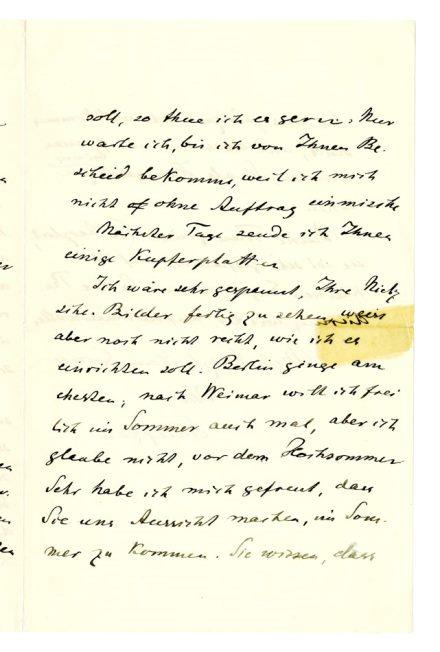 soll, so thue ich es gern. Nur
warte ich, bis ich von Ihnen Be-
scheid bekomme, weil ich mich
nicht ohne Auftrag einmische
Nächster Tage sende ich Ihnen
einige Kupferplatten
Ich wäre sehr gespannt, Ihre
Bilder fertig zu sehen, weiss
aber noch nicht recht, wie ich es
einrichten soll. Berlin ginge am
ehesten, nach Weimar will ich frei
lich im Sommer auch mal, aber ich
glaube nicht, vor dem Hochsommer
Sehr habe ich mich gefreut, dass
Sie uns Aussicht machen, im Som-
mer zu kommen. Sie wissen, dass